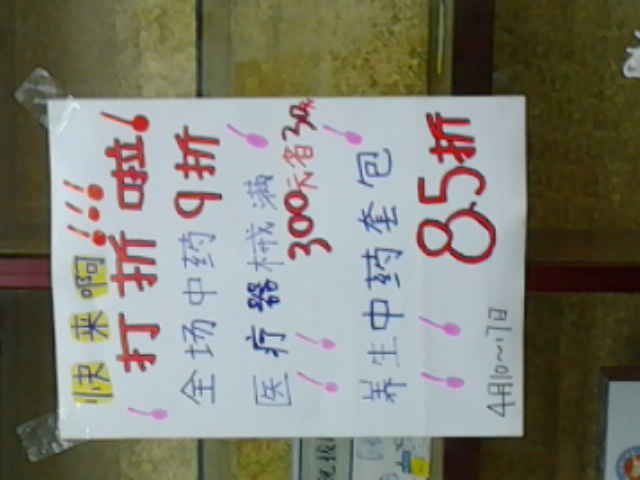 快来啊!!!
打折啦!
全场中药9折
医疗器械满
300元省30元
养生中药套包
8.5折
4月10~17日